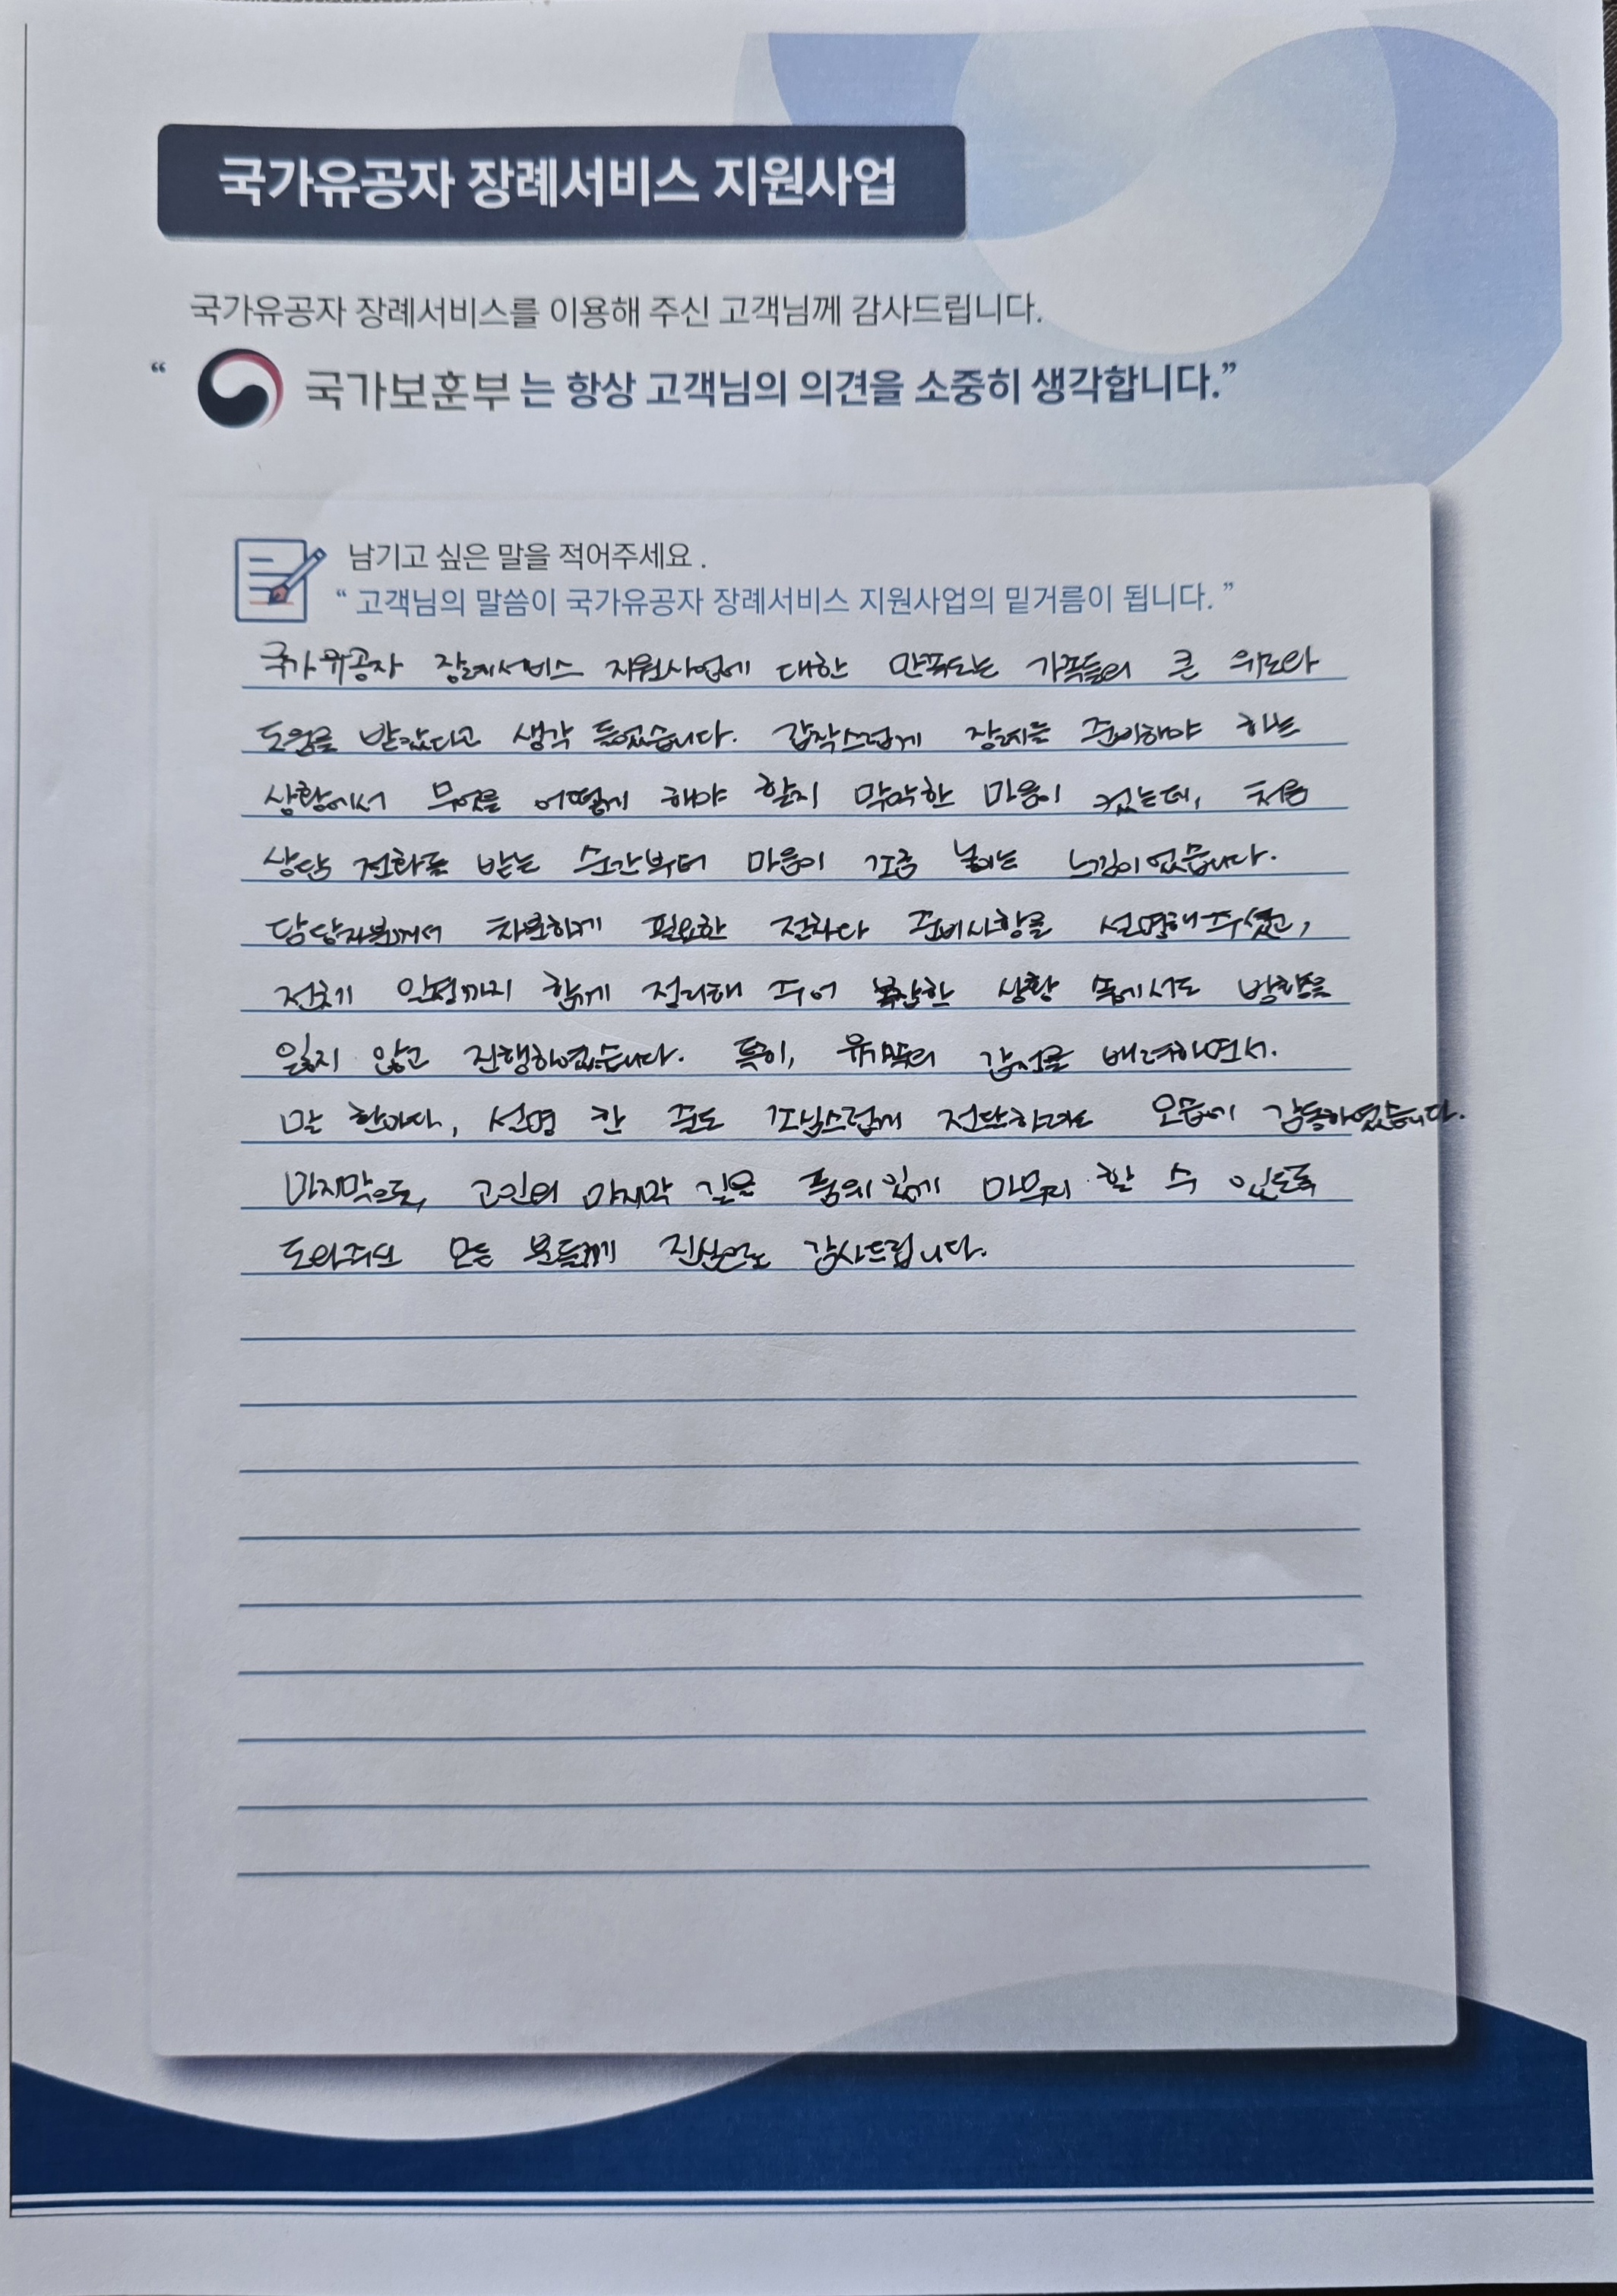 국가유공자 장례서비스 지원사업
국가유공자 장례서비스를 이용해 주신 고객님께 감사드립니다.
“ 국가보훈부는 항상 고객님의 의견을 소중히 생각합니다.”
남기고 싶은 말을 적어주세요.
“ 고객님의 말씀이 국가유공자 장례서비스 지원사업의 밑거름이 됩니다. ”
국가유공자 장례서비스 지원사업에 대한 만족도는 가족들의 큰 위로와
도움을 받았다고 생각 들었습니다. 갑작스럽게 장례를 준비해야 하는
상황에서 무엇을 어떻게 해야 할지 막막한 마음이 컸는데, 처음
상담 전화를 받는 순간부터 마음이 조금 놓이는 느낌이었습니다.
담당자분께서 차분하게 필요한 절차다 준비사항을 설명해주셨고,
전체 일정까지 함께 정리해 주어 복잡한 상황 속에서도 방향을
잃지 않고 진행하였습니다. 특히, 유가족의 감정을 배려하면서.
말 한마디, 설명 한 줄도 조심스럽게 전달하려는 모습에 감동하였습니다.
마지막으로, 고인의 마지막 길을 품위있게 마무리 할 수 있도록
도와주신 모든 분들께 진심으로 감사드립니다.